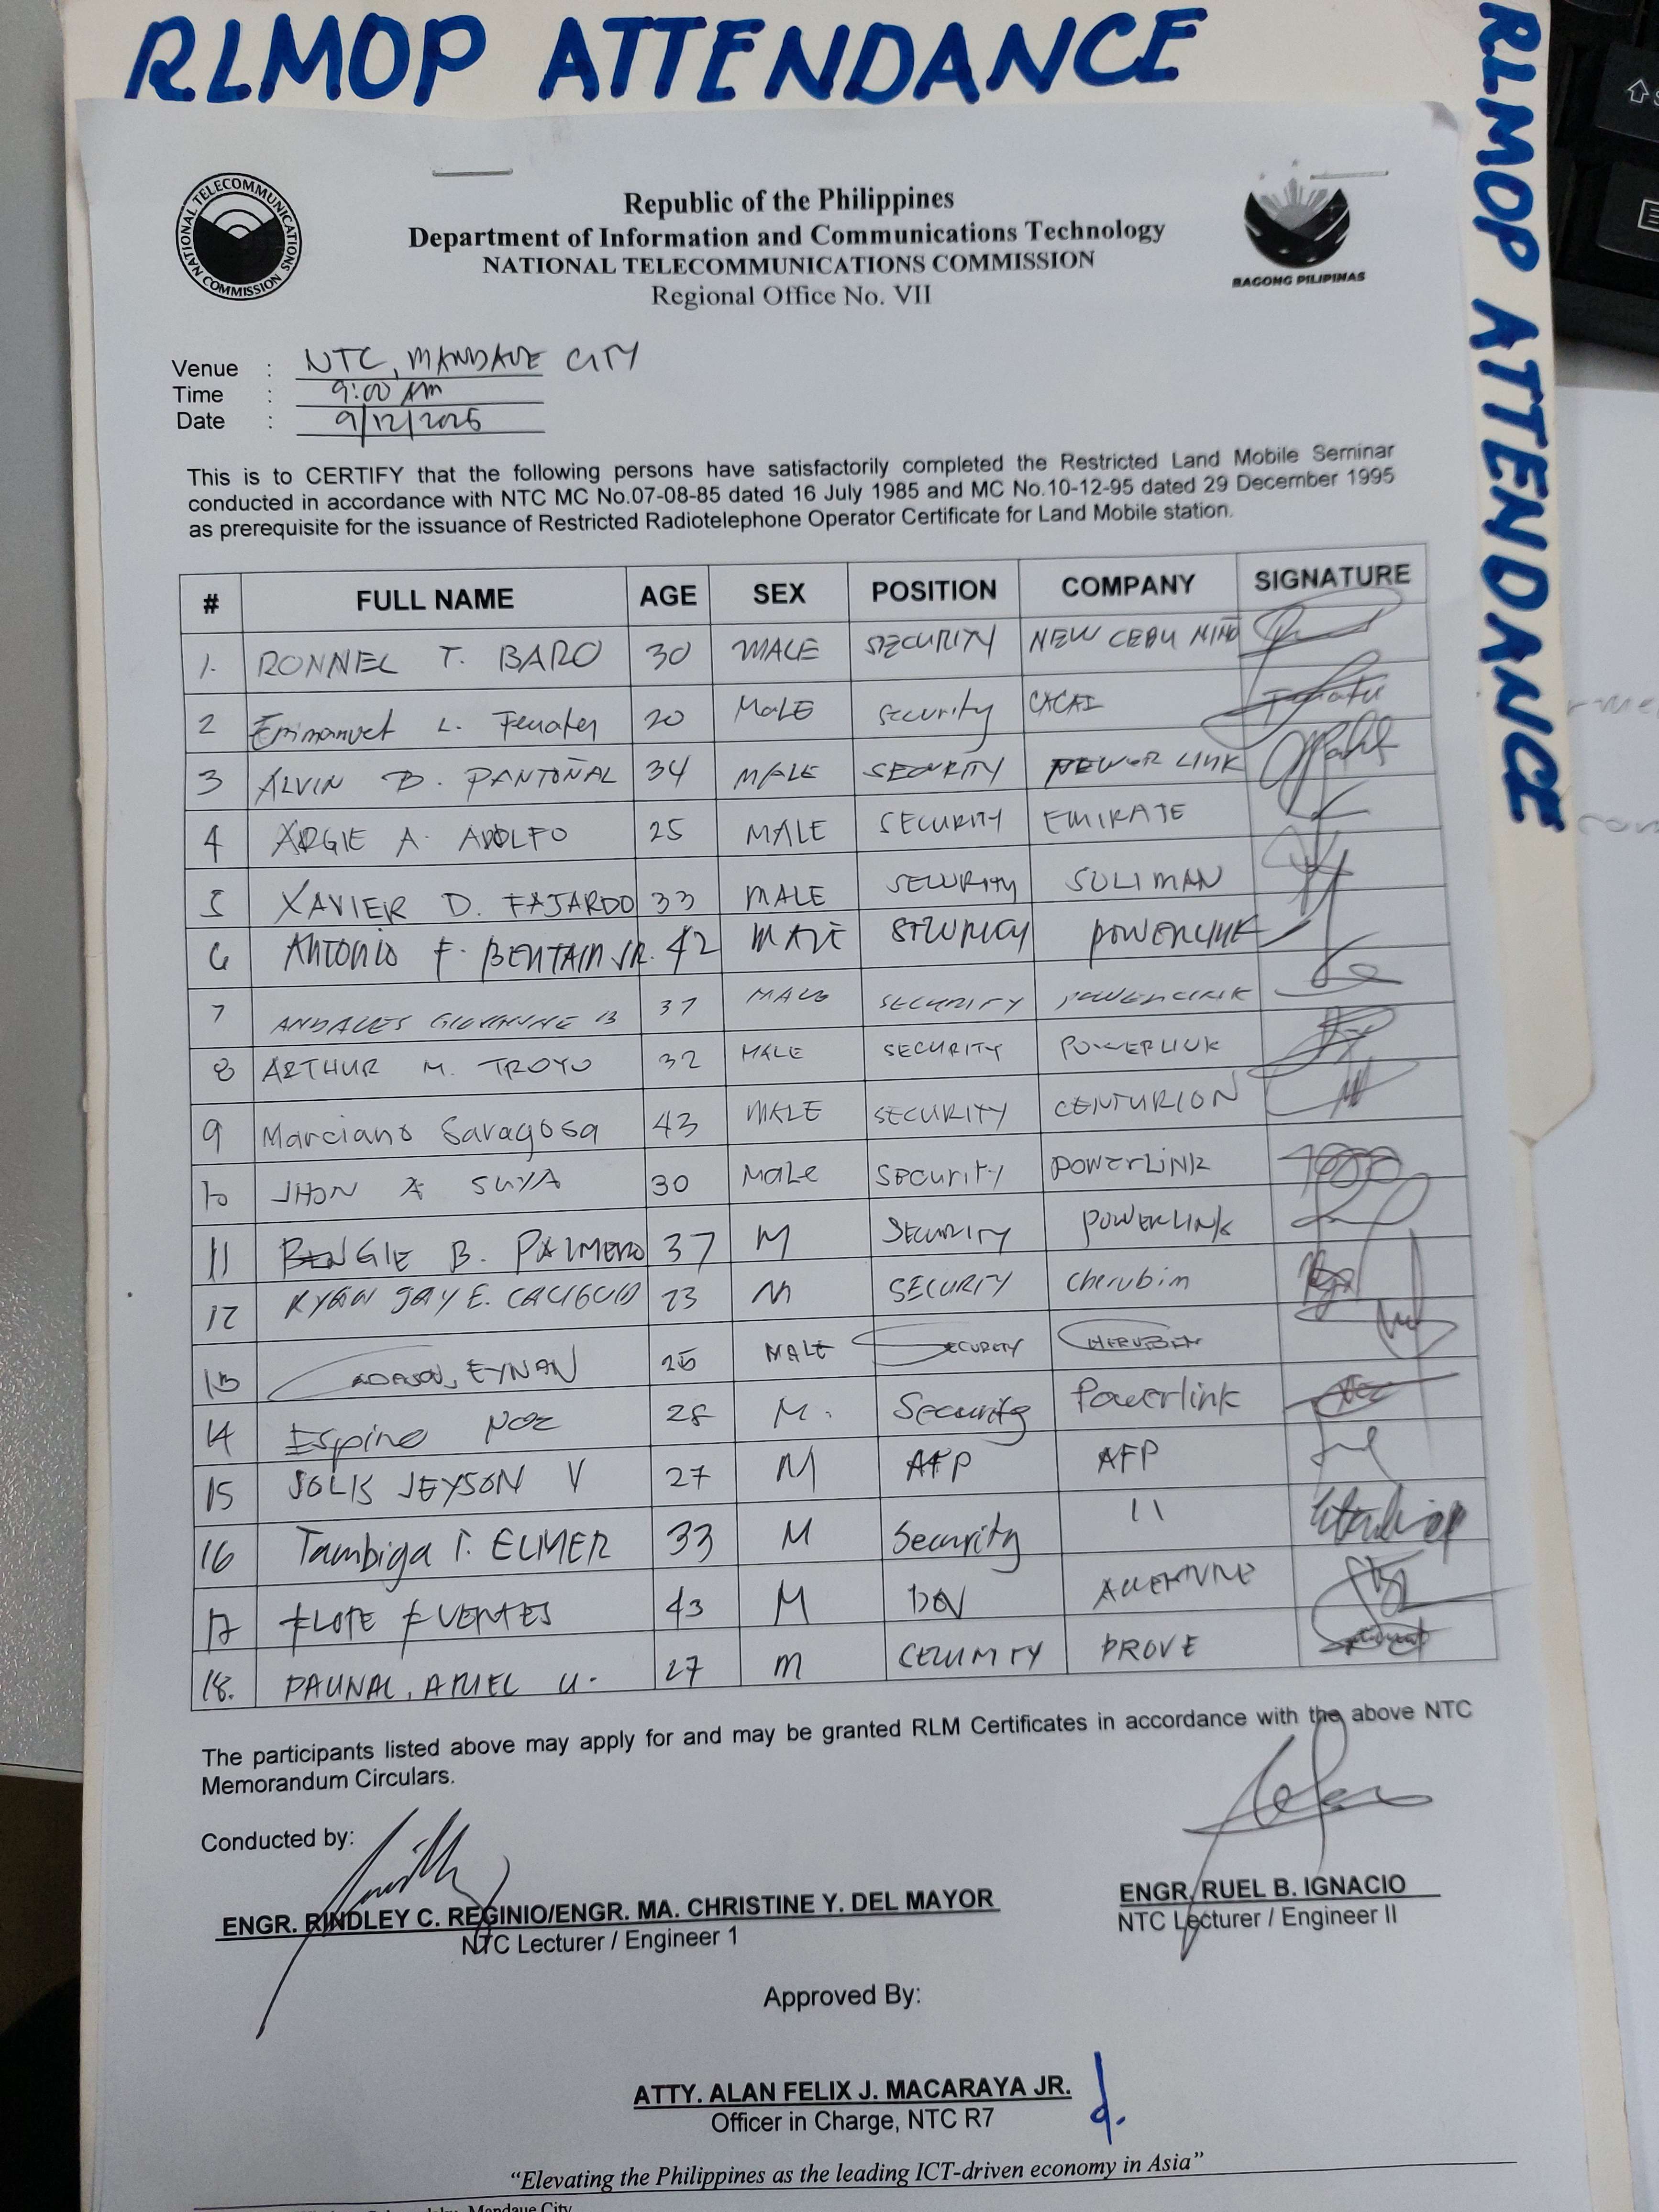 RLMOP ATTENDANCE
RLMOP ATTENDANCE
NATIONAL TELECOMMUNICATIONS COMMISSION
Republic of the Philippines
Department of Information and Communications Technology
NATIONAL TELECOMMUNICATIONS COMMISSION
Regional Office No. VII
BAGONG PILIPINAS
Venue : NTC, MANDAUE CITY
Time : 9:00 AM
Date : 9/12/2025
This is to CERTIFY that the following persons have satisfactorily completed the Restricted Land Mobile Seminar
conducted in accordance with NTC MC No.07-08-85 dated 16 July 1985 and MC No.10-12-95 dated 29 December 1995
as prerequisite for the issuance of Restricted Radiotelephone Operator Certificate for Land Mobile station.
# FULL NAME AGE SEX POSITION COMPANY SIGNATURE
1. RONNEL T. BARO 30 MALE SECURITY NEW CEBU
2 Emmanuel L. 20 MaLE Security
3 ALVIN B. PANTOÑAL 34 MALE SECURITY LINK
4 ARGIE A. ADOLFO 25 MALE SECURITY EMIRATE
5 XAVIER D. FAJARDO 33 MALE SECURITY SULIMAN
6 ANTONIO F. BENTAIN JR. 42 MALE SECURITY POWERLINK
7 ANDALES 37 MALE SECURITY POWERLINK
8 ARTHUR M. TROYO 32 MALE SECURITY POWERLINK
9 Marciano Saragosa 43 MALE SECURITY CENTURION
10 JHON A SUYA 30 MaLe Security POWERLINK
11 B. PALMERO 37 M SECURITY POWERLINK
12 RYAN JAY E. 23 M SECURITY Cherubim
13 EYNAN MALE SECURITY CHERUBEM
14 Espino NOE 28 M. Security Powerlink
15 SOLIS JEYSON V 27 M AFP AFP
16 Tambiga T. ELMER 33 M Security 11
17 FLOTE FUENTES 43 M
18. PAUNAL, ARIEL U. 27 M CECURITY PROVE
The participants listed above may apply for and may be granted RLM Certificates in accordance with the above NTC
Memorandum Circulars.
Conducted by:
ENGR. RINDLEY C. REGINIO/ENGR. MA. CHRISTINE Y. DEL MAYOR
NTC Lecturer / Engineer 1
ENGR. RUEL B. IGNACIO
NTC Lecturer / Engineer II
Approved By:
ATTY. ALAN FELIX J. MACARAYA JR.
Officer in Charge, NTC R7
“Elevating the Philippines as the leading ICT-driven economy in Asia”
Mandaue City